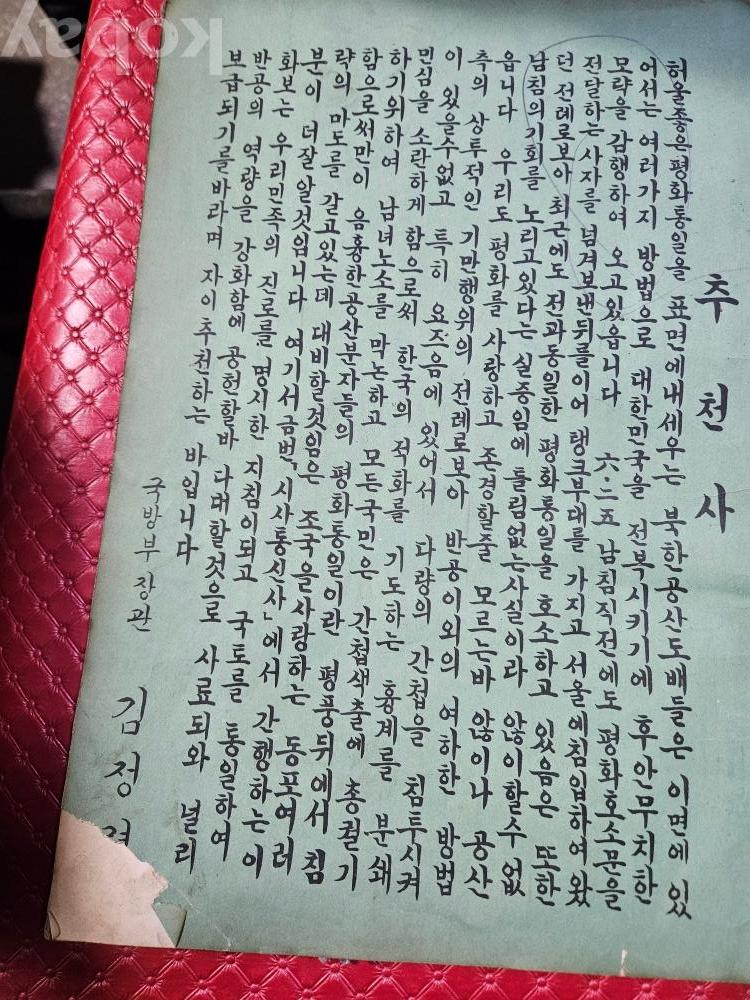 추천사
허울좋은평화통일을 표면에내세우는 북한공산도배들은 이면에 있
어서는 여러가지 방법으로 대한민국을 전복시키기에 후안무치한
모략을 감행하여 오고있읍니다 六·二五 남침직전에도 평화호소문을
전달하는 사자를 넘겨보낸뒤를이어 탱크부대를 가지고 서울에침입하여왔
던 전례로보아 최근에도 전과동일한 평화통일을 호소하고 있음은 또한
남침의기회를 노리고있다는 실증임에 틀림없는사실이라 않이할수 없
읍니다 우리도 평화를 사랑하고 존경할줄 모르는바 않이나 공산
측의 상투적인 기만행위의 전례로보아 반공이외의 여하한 방법
이 있을수없고 특히 요즈음에 있어서 다량의 간첩을 침투시켜
민심을 소란하게 함으로써 한국의 적화를 기도하는 흉계를 분쇄
하기위하여 남녀노소를 막논하고 모든국민은 간첩색출에 총궐기
함으로써만이 음흉한공산분자들의 평화통일이란 평풍뒤에서 침
략의 마도를 갈고있는데 대비할것임은 조국을사랑하는 동포여러
분이 더잘알것입니다 여기서금번「시사통신사」에서 간행하는이
화보는 우리민족의 진로를 명시한 지침이되고 국토를 통일하여
반공의 역량을 강화함에 공헌할바 다대할것으로 사료되와 널리
보급되기를바라며 자이추천하는 바입니다
국방부장관 김정렬
kobay